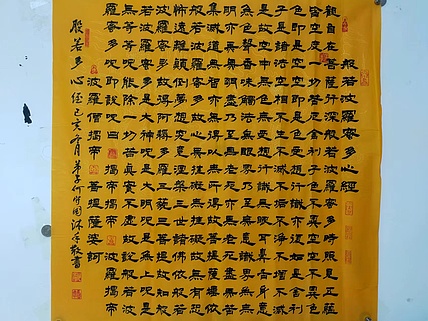 般若波羅蜜多心經
觀自在菩薩行深般若波羅蜜多時照見五蘊
皆空度一切苦厄舍利子色不異空空不異色
色即是空空即是色受想行識亦復如是舍利
子是諸法空相不生不滅不垢不淨不增不減
是故空中無色無受想行識無眼耳鼻舌身意
無色聲香味觸法無眼界乃至無意識界無無
明亦無無明盡乃至無老死亦無老死盡無苦
集滅道無智亦無得以無所得故菩提薩埵依
般若波羅蜜多故心無罣礙無罣礙故無有恐
怖遠離顛倒夢想究竟涅槃三世諸佛依般若
波羅蜜多故得阿耨多羅三藐三菩提故知般
若波羅蜜多是大神咒是大明咒是無上咒是
無等等咒能除一切苦真實不虛故說般若波
羅蜜多咒即說咒曰 揭帝 揭帝 波羅揭帝
波羅僧揭帝 菩提薩婆訶
般若多心經己亥 月弟子何 沐手敬書